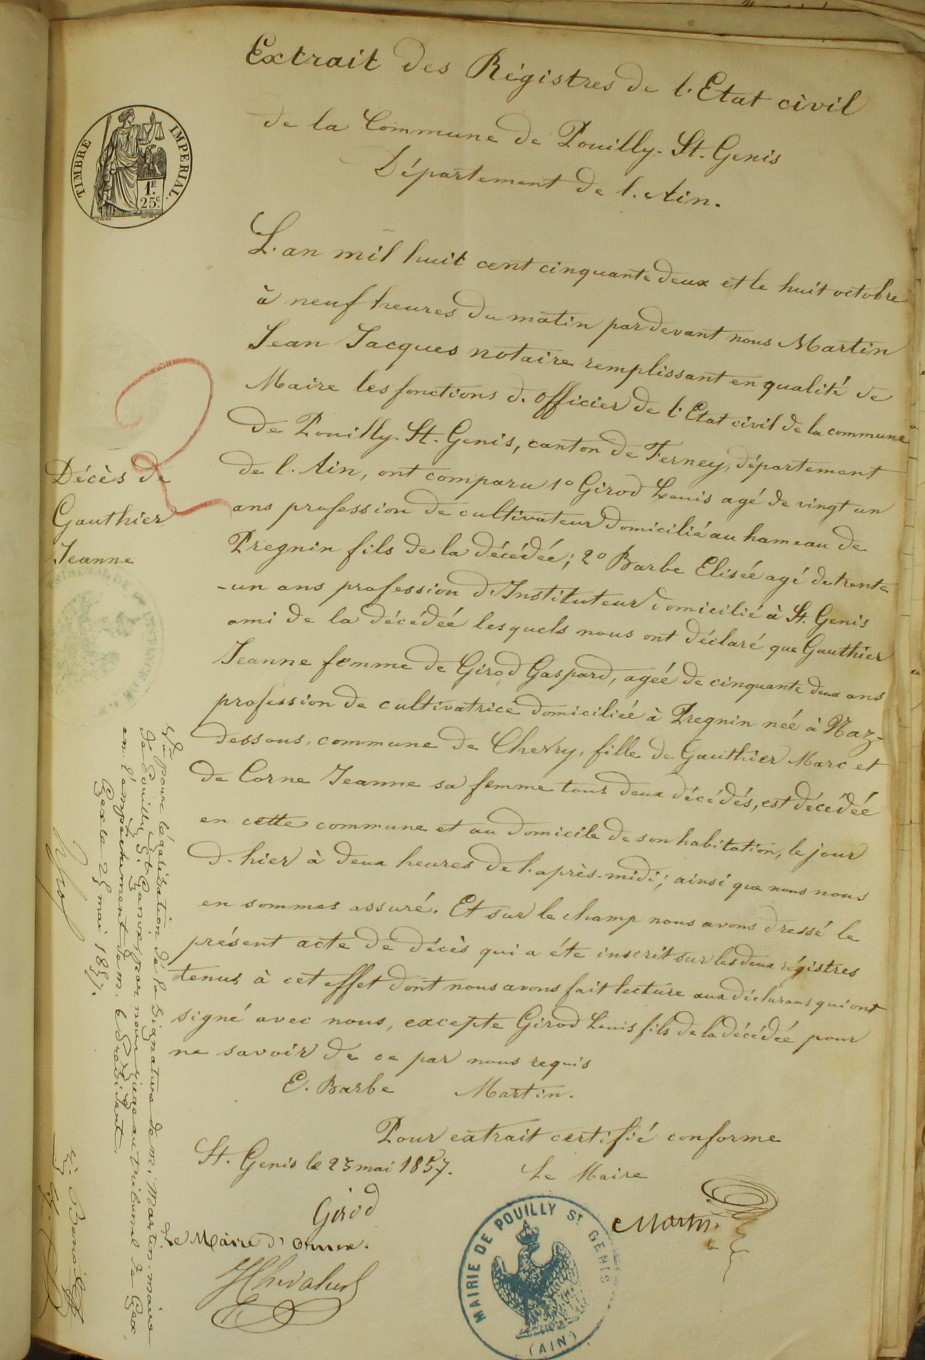 Extrait des Régistres de l'Etat civil
de la Commune de Pouilly-St. Genis
Département de l'Ain.
TIMBRE IMPERIAL.
1f.
25c.
L'an mil huit cent cinquante deux et le huit octobre
à neuf heures du matin par devant nous Martin
Jean Jacques notaire remplissant en qualité de
Maire les fonctions d'officier de l'Etat civil de la commune
de Pouilly-St. Genis, canton de Ferney, département
de l'Ain, ont comparu 1º Girod Louis agé de vingt un
ans profession de cultivateur domicilié au hameau de
Pregnin fils de la décédée; 2º Barbe Elisée agé de trente
-un ans profession d'Instituteur domicilié à St. Genis
ami de la décédée lesquels nous ont déclaré que Gauthier
Jeanne femme de Girod Gaspard, agée de cinquante deux ans
profession de cultivatrice domiciliée à Pregnin née à Naz-
dessous, commune de Chevry, fille de Gauthier Marc et
de Corne Jeanne sa femme tous deux décédés, est décédée
en cette commune et au domicile de son habitation, le jour
d'hier à deux heures de l'après-midi; ainsi que nous nous
en sommes assuré. Et sur le champ nous avons dressé le
présent acte de décès qui a été inscrit sur les deux régistres
tenus à cet effet dont nous avons fait lecture aux déclarans qui ont
signé avec nous, excepté Girod Louis fils de la décédée pour
ne savoir de ce par nous requis
E. Barbe Martin.
Pour extrait certifié conforme
St. Genis le 23 mai 1857.
Le Maire
Martin
Girod
Le Maire d'Ornex.
MAIRIE DE POUILLY St GENIS
(AIN)
Décès de
Gauthier
Jeanne
2
Vu pour légalisation de la signature de m. Martin maire
de Pouilly St Genis par nous juge au tribunal de Gex,
en l'empêchement de m. le Président.
Gex le 25 mai 1857.